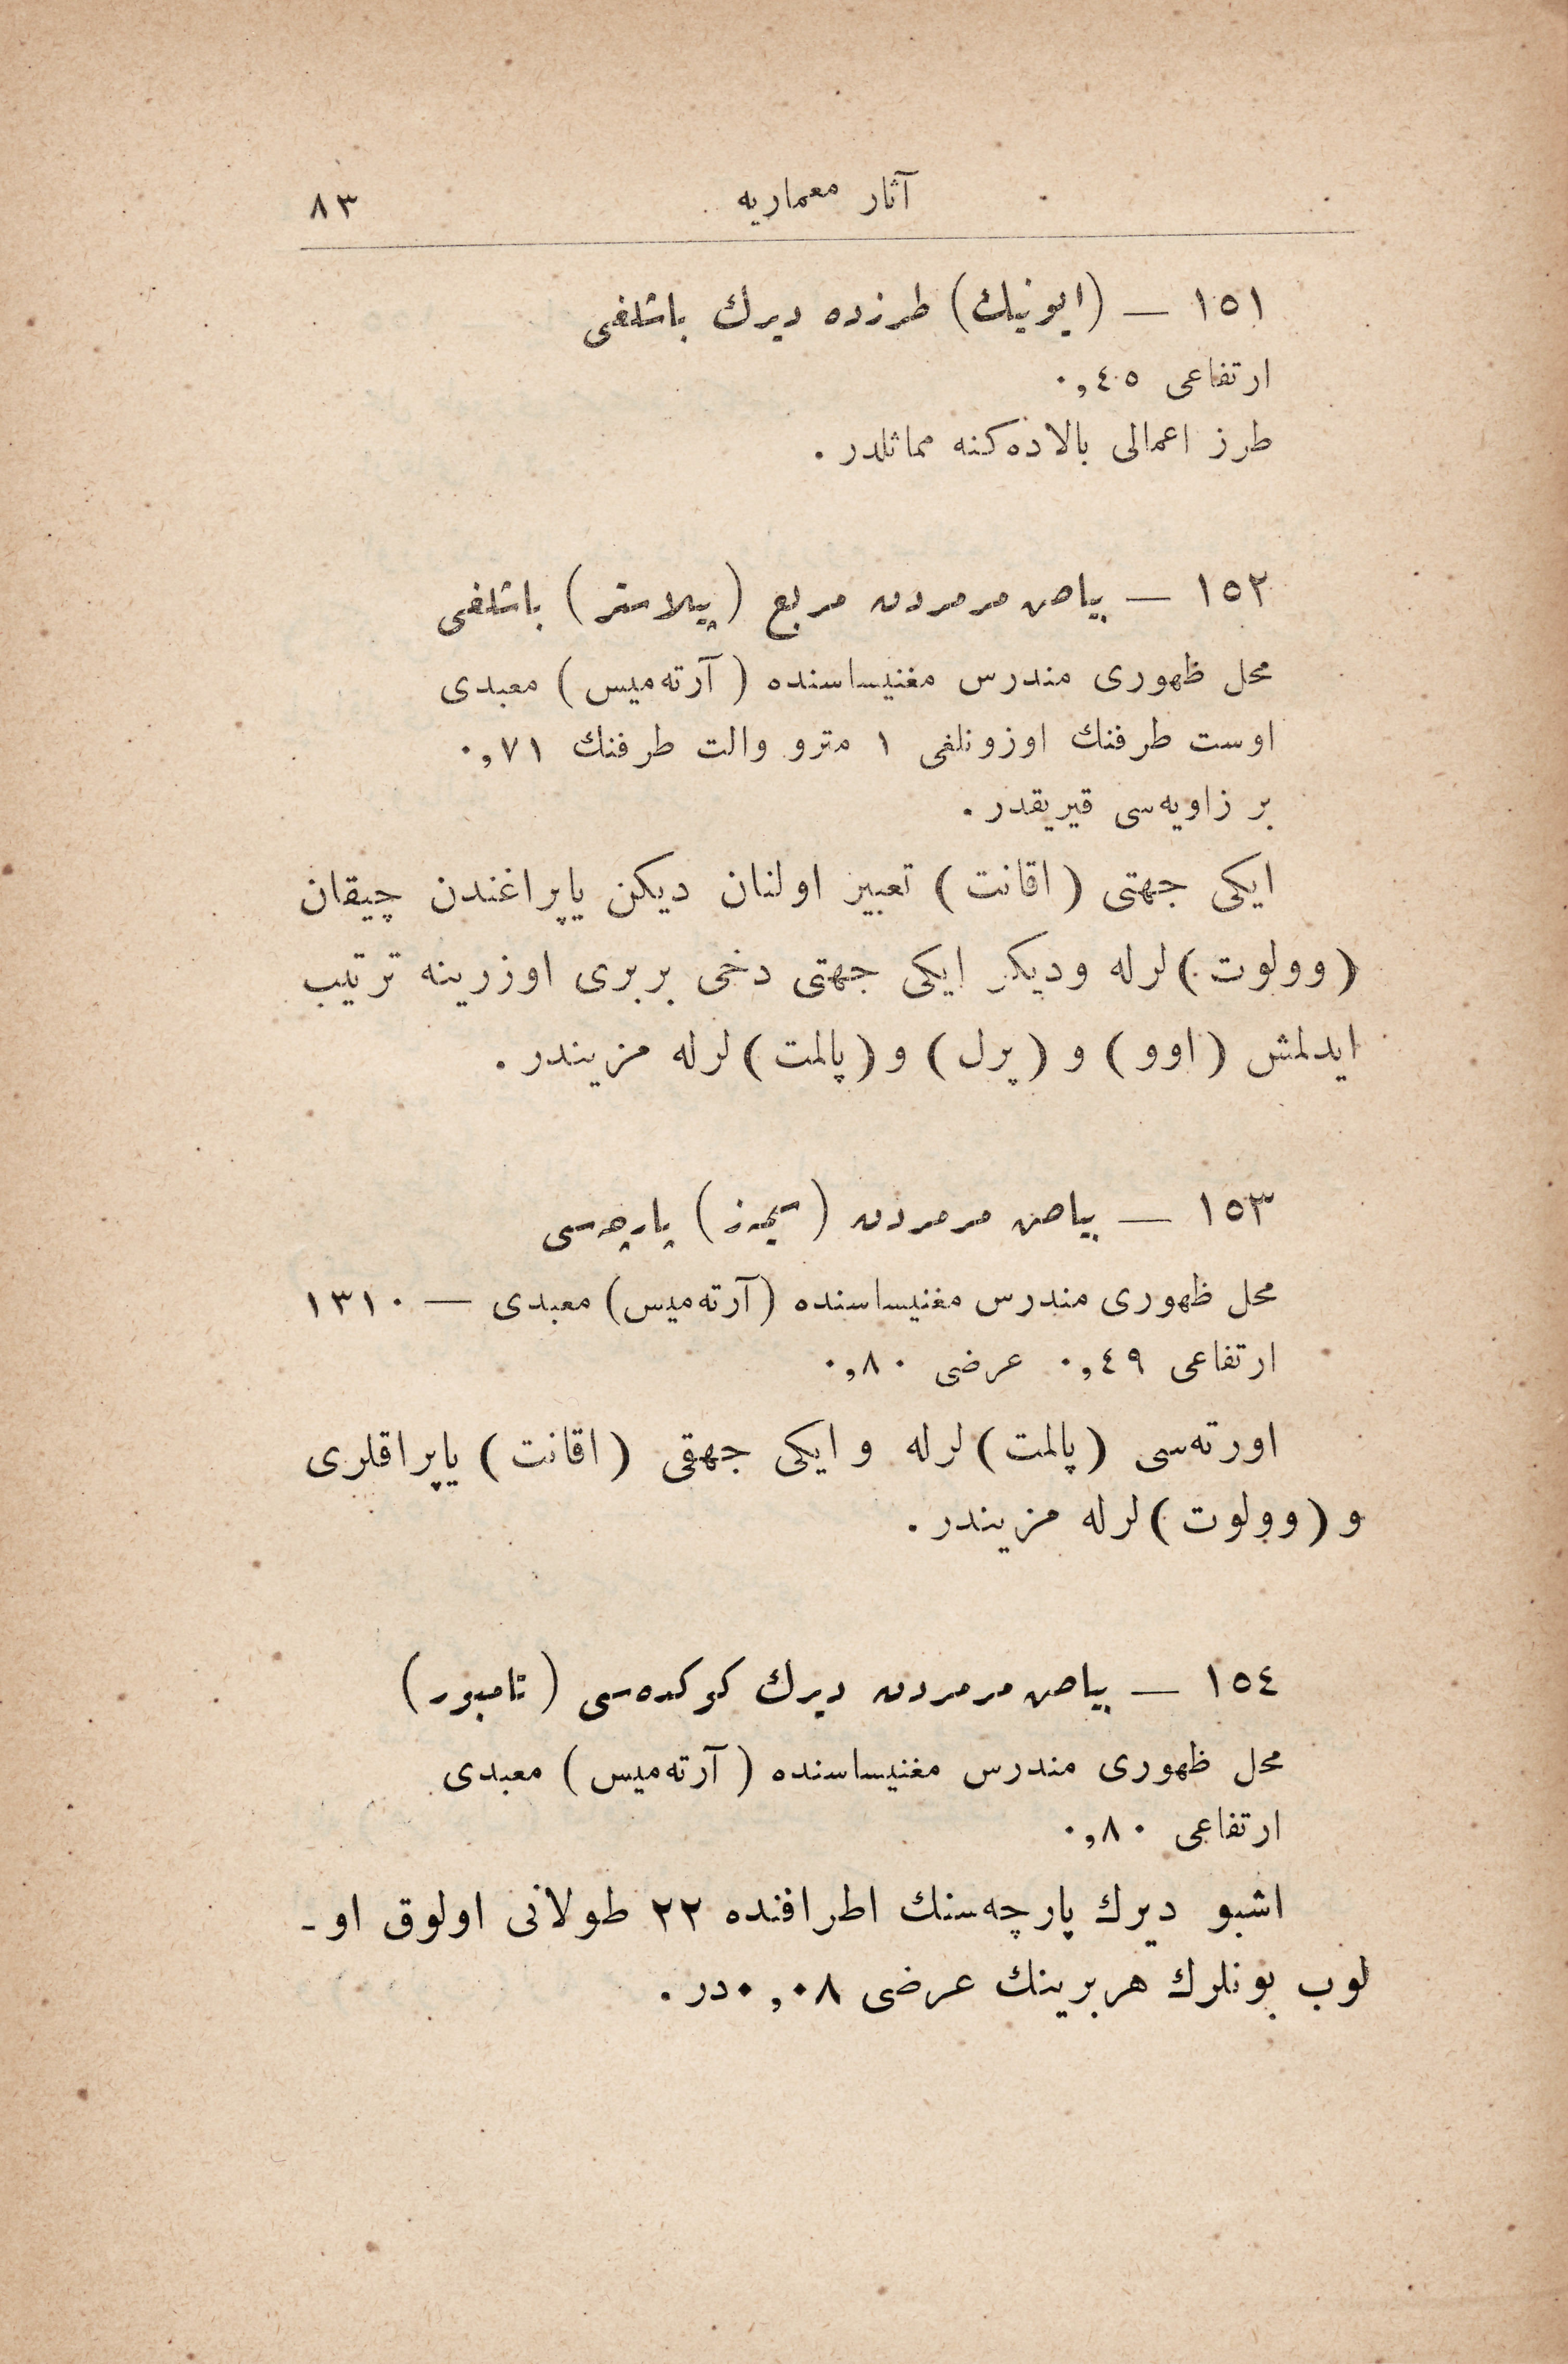 آثار معماریه ٨٣
١٥١ — (ایونیك) طرزده دیرك باشلغی
ارتفاعی ٠,٤٥
طرز اعمالی بالاده‌كنه مماثلدر .
١٥٢ — بیاض مرمردن مربع (پیلاستر) باشلغی
محل ظهوری مندرس مغنیساسنده (آرته‌میس) معبدی
اوست طرفنك اوزونلغی ١ مترو والت طرفنك ٠,٧١
بر زاویه‌سی قیریقدر .
ایكی جهتی (اقانت) تعبیر اولنان دیكن یاپراغندن چیقان
(وولوت)لرله ودیكر ایكی جهتی دخی بربری اوزرینه ترتیب
ایدلمش (اوو) و (پرل) و(پالمت)لرله مزیندر .
١٥٣ — بیاض مرمردن (سیمه‌ز) پارچه‌سی
محل ظهوری مندرس مغنیساسنده (آرته‌میس) معبدی — ١٣١٠
ارتفاعی ٠,٤٩ عرضی ٠,٨٠
اورته‌سی (پالمت)لرله و ایكی جهقی (اقانت) یاپراقلری
و (وولوت)لرله مزیندر .
١٥٤ — بیاض مرمردن دیرك كوكده‌سی (تامبور)
محل ظهوری مندرس مغنیساسنده (آرته‌میس) معبدی
ارتفاعی ٠,٨٠
اشبو دیرك پارچه‌سنك اطرافنده ٢٢ طولانی اولوق او-
لوب بونلرك هربرینك عرضی ٠,٠٨در .